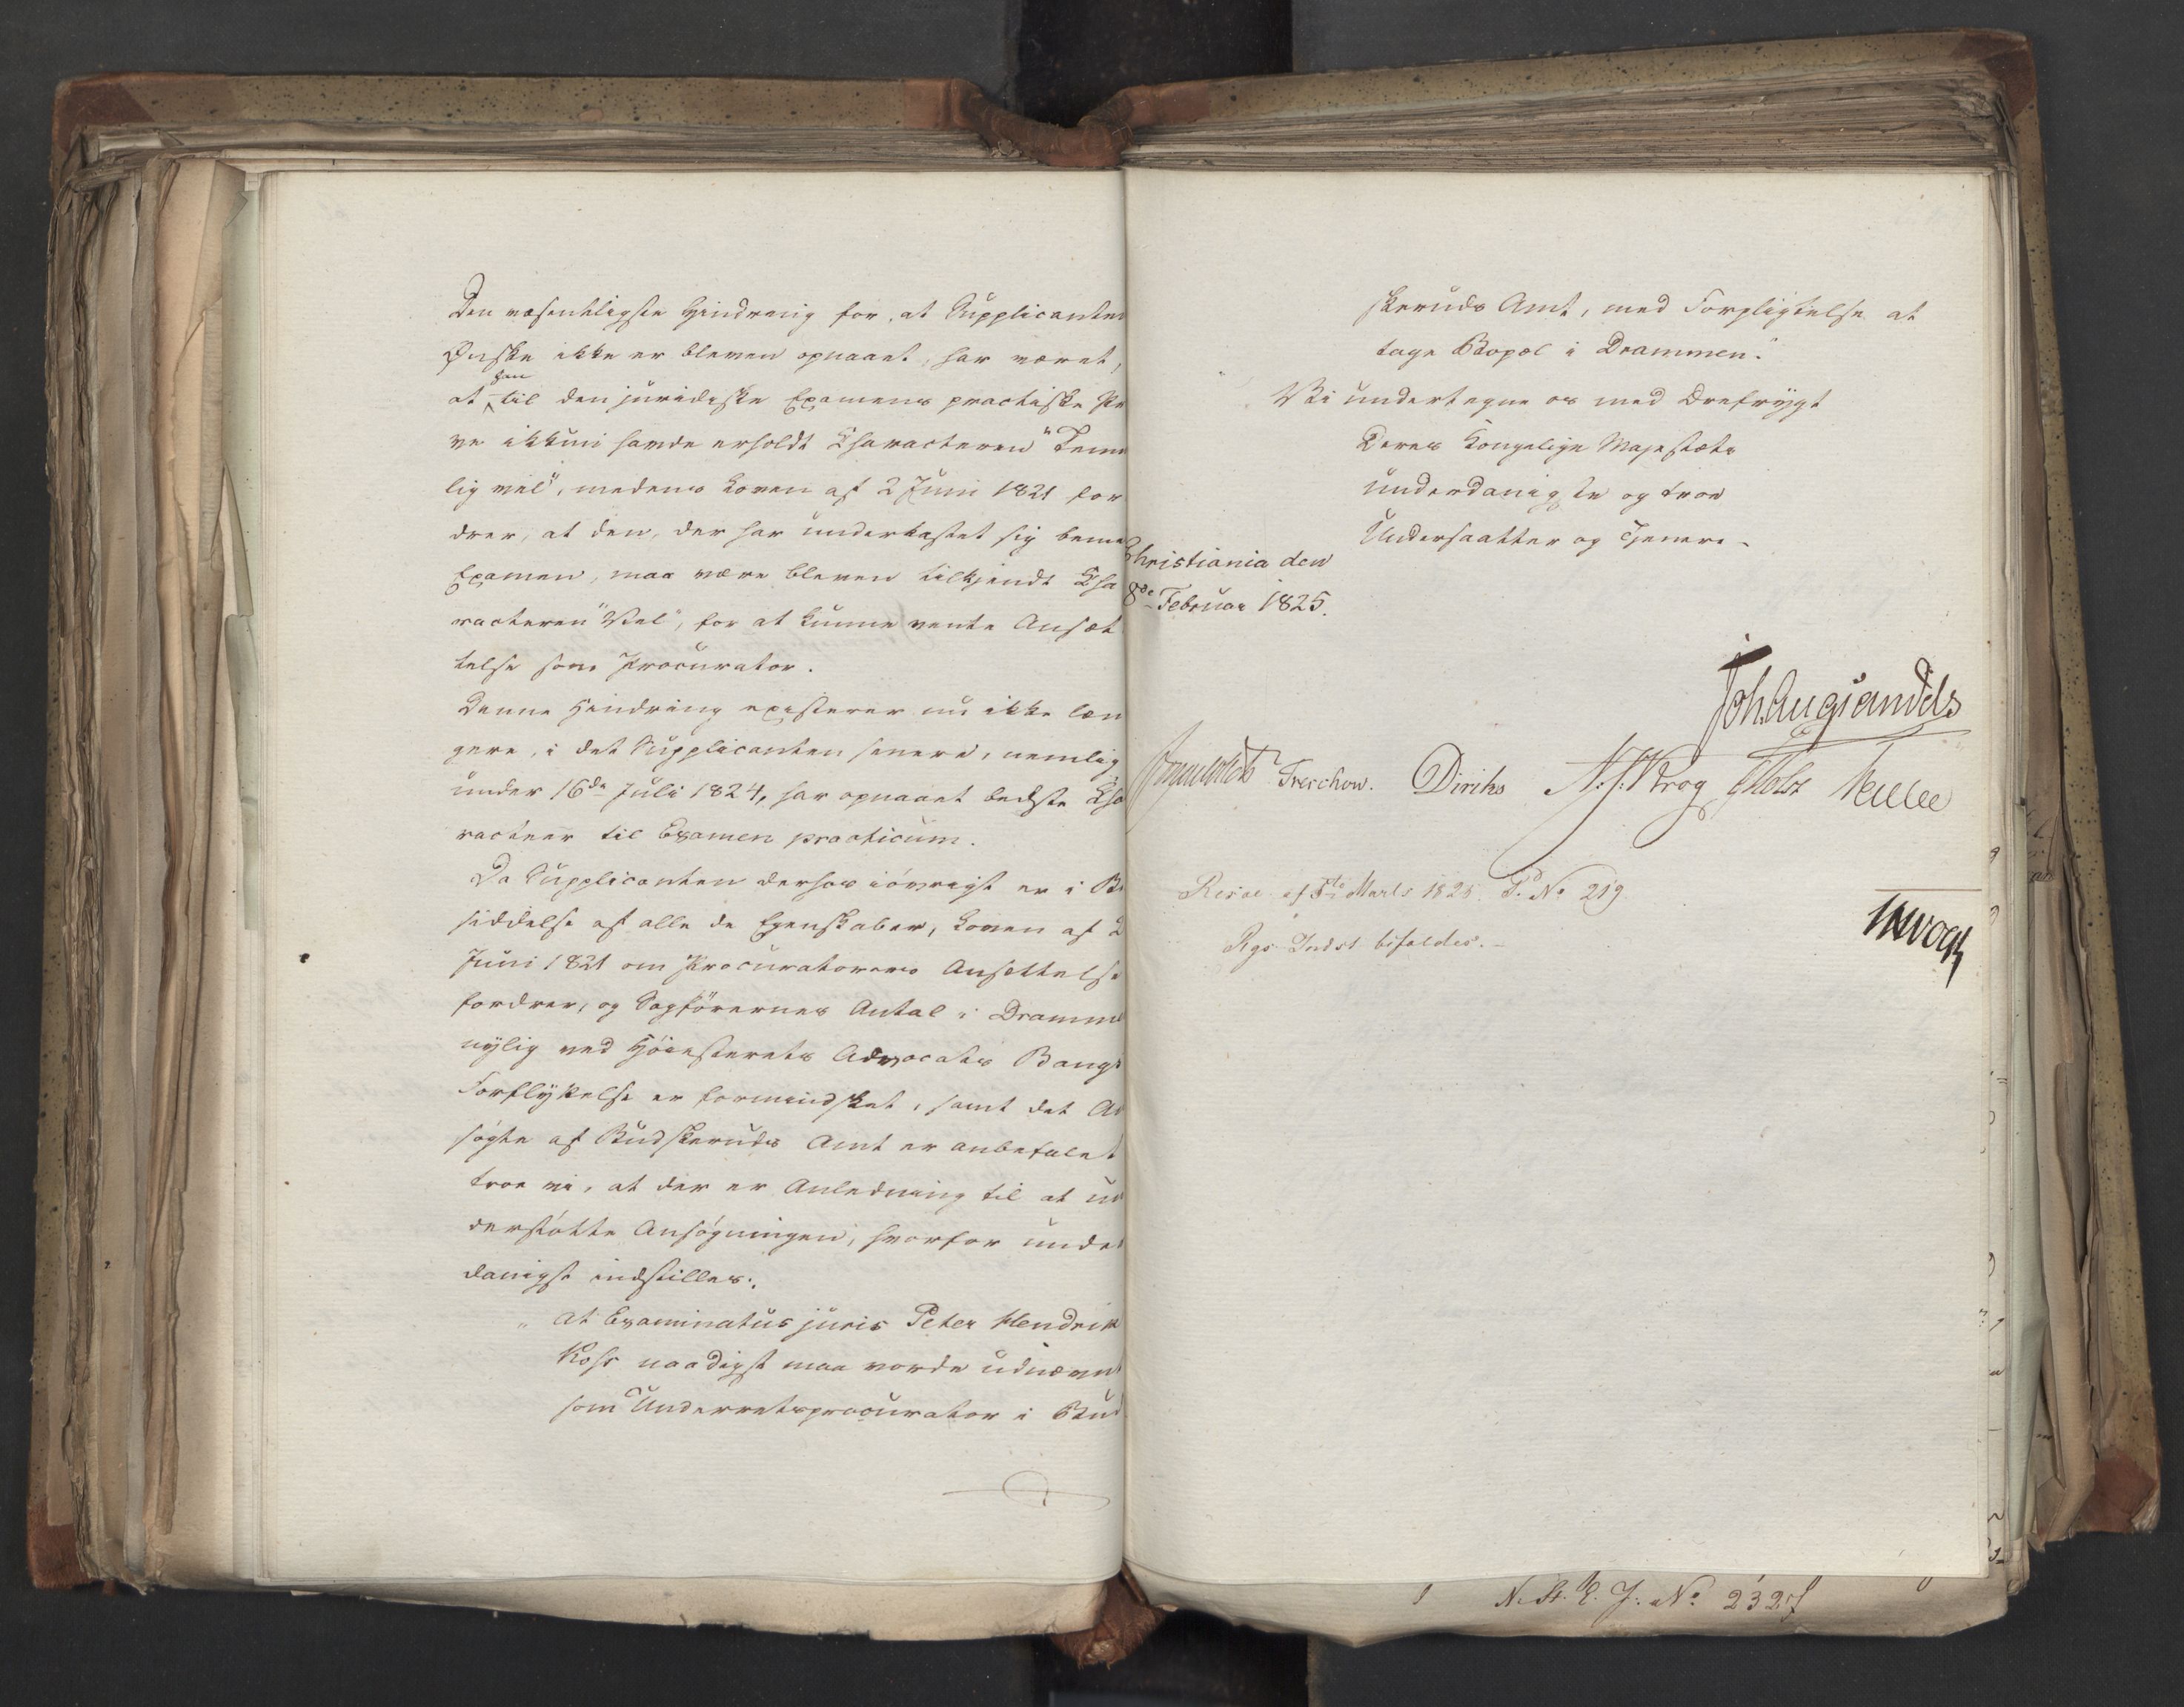 Den væsentligste Hindring for, at Supplicanten
Ønske ikke er bleven opnaaet, har været,
at han til den juridiske Examens practiske Prø
ve ikkun havde erholdt Characteren "Teme
lig vel", medens Loven af 2 Juni 1821 for
drer, at den, der har underkastet sig bem
Examen, maa være bleven tilkjendt Cha
racteren "Vel", for at kunne vente Ansæt
telse som Procurator.
Denne Hindring existerer nu ikke læn
gere, i det Supplicanten senere, nemlig
under 16de Juli 1824, har opnaaet bedste Cha
racteer til Examen practicum.
Da Supplicanten derhos iøvrigt er i Be
siddelse af alle de Egenskaber, Loven af 2
Juni 1821 om Procuratorers Ansættelse
fordrer, og Sagførernes Antal i Dramme
nylig ved Høiesterets Advocats Bangs
Forflyttelse er formindsket, samt det An
søgte af Budskeruds Amt er anbefalet
troe vi, at der er Anledning til at un
derstøtte Ansøgningen, hvorfor under
danigst indstilles:
"At Examinatus juris Peter Hendrik
Koss naadigst maa vorde udnævnt
som Underretsprocurator i Bud
skeruds Amt, med Forpligtelse at
tage Bopæl i Drammen."
Vi undertegne os med Ærefrygt
Deres Kongelige Majestæts
underdanigste og troe
Undersaatter og Tjenere.
Christiania den
8de Februar 1825.
Joh. Aug Sandels
Sommerhielm Treschow. Diriks N. J. Krog J Holst
Resol. af 5te Marts 1825. P. No 219.
Rgs Indst. bifaldes.
JHVogt
N. St. E. J. No 232